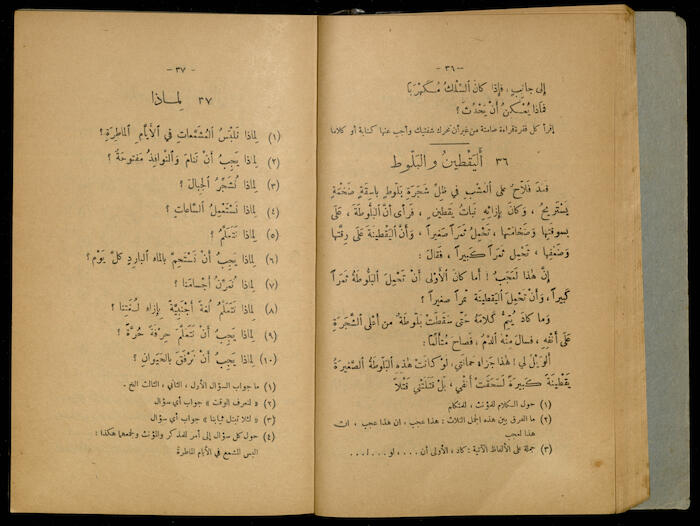 - ٣٦ -
إلى جانِبٍ ، فإذا كانَ السِّلكُ مُكَهْرَبًا
فماذا يُمْكِنُ أنْ يَحْدُثَ ؟
إقرأ كل فقرة قراءة صامتة من غير أن تحرك شفتيك وأجب عنها كتابة أو كلاما
٣٦ أَلْيَقْطينُ والبَلّوط
قعدَ فَلّاحٌ على العُشْبِ في ظِلِّ شَجَرَةِ بَلّوطٍ باسِقَةٍ ضَخْمَةٍ
يَسْتَريحُ ، وكانَ بإزائِهِ نَباتُ يَقْطينٍ ، فرأى أنَّ البَلّوطَةَ ، على
بسوقتِها وضَخامَتِها ، تَحْمِلُ ثمراً صَغيراً ، وأنَّ اليَقْطينَةَ على رِقَّتِها
وضَعفِها ، تَحْمِلُ ثَمراً كَبيراً ، فقالَ :
إنَّ هٰذا لَعَجَبٌ ! أما كانَ الأَوْلى أنْ تَحْمِلَ البَلّوطَةُ ثَمَراً
كَبيراً ، وأنْ تَحْمِلَ اليَقْطينَةُ ثمراً صَغيراً ؟
وما كادَ يُتِمُّ كَلامَهُ حَتّى سَقَطَتْ بَلّوطَةٌ من أعْلى الشَّجَرَةِ
على أنْفِهِ ، فسالَ مِنْهُ الدَّمُ ، فصاحَ مُتَألِّماً :
ألوَيْلُ لي ! هٰذا جَزاءُ حَماقتي، لوْ كانَتْ هٰذِهِ البَلّوطَةُ الصَّغيرَةُ
يَقْطينَةً كَبيرَةً لسَحَقَتْ أنْفي ، بلْ قتلَتْني قَتْلاً
(١) حول الكلام للمؤنث ، فلمتكلم
(٢) ما الفرق بين هذه الجمل الثلاث : هذا عجب ، ان هذا عجب ، ان
هذا لعجب
(٣) جملة على الألفاظ الآتية : كاد ، الأولى أن . . . ، لو . . . لـ . . .
- ٣٧ -
٣٧ لِماذا
(١) لِماذا نَلْبَسُ المُشَمَّعاتِ في الأَيّامِ الماطِرَةِ ؟
(٢) لِماذا يَجِبُ أنْ نَنامَ والنَّوافِذُ مَفتوحَةٌ ؟
(٣) لماذا نُشَجِّرُ الجِبالَ ؟
(٤) لماذا نَسْتَعْمِلُ السّاعاتِ ؟
(٥) لماذا نَتَعَلَّمُ ؟
(٦) لِماذا يَجِبُ أنْ نَسْتَحِمَّ بالماءِ البارِدِ كلَّ يَوْمٍ ؟
(٧) لماذا نُمَرِّنُ أجْسامَنا ؟
(٨) لماذا نَتَعَلَّمُ لُغَةً أجْنَبيَّةً بإزاءِ لُغَتِنا ؟
(٩) لماذا يَجِبُ أنْ نَتَعَلَّمَ حِرْفَةً حُرَّةً ؟
(١٠) لماذا يَجِبُ أنْ نَرْفُقَ بالحَيَوانِ ؟
(١) ما جواب السؤال الأول ، الثاني ، الثالث الخ .
(٢) « لنعرف الوقت » جواب أي سؤال
(٣) « لئلا تبتل ثيابنا » جواب أي سؤال
(٤) حول كل سؤال إلى أمر للمذكر والمؤنث ولجمعهما هكذا :
البس المشمع في الأيام الماطرة